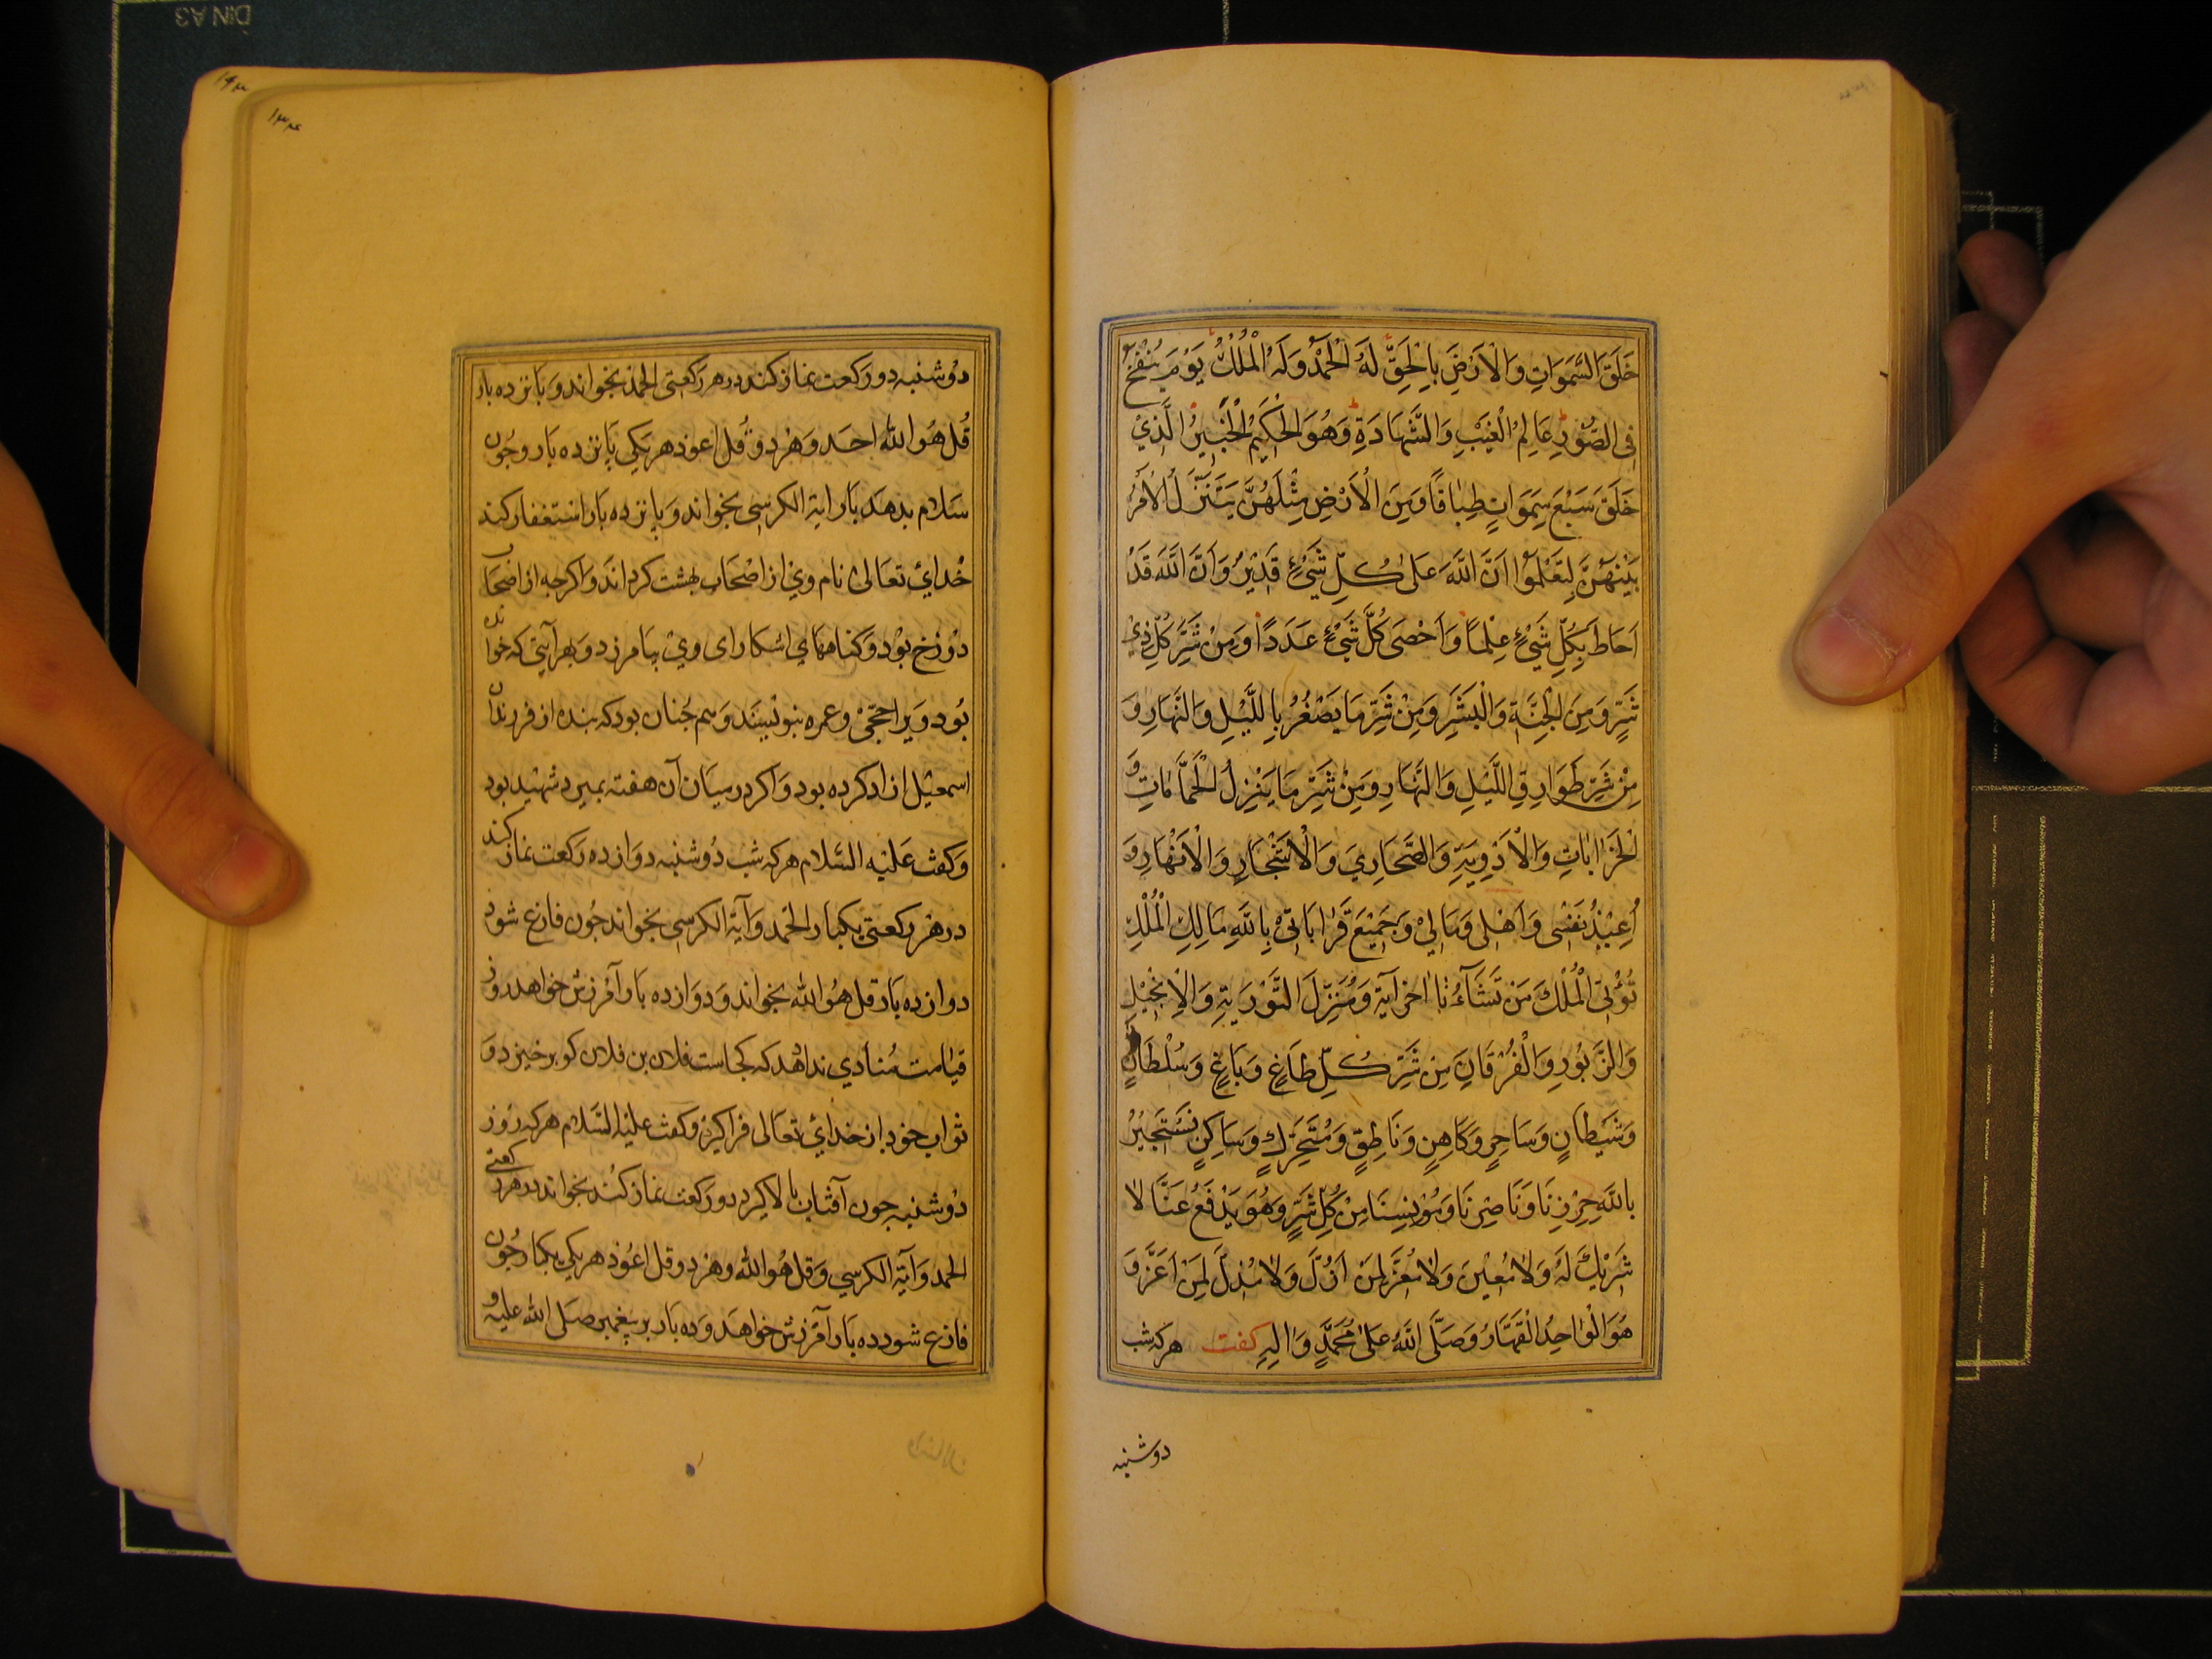 خَلَقَ السَّمَوَاتِ وَالْاَرْضَ بِالْحَقِّ لَهُ الْحَمْدُ وَلَهُ الْمُلْكُ يَوْمَ يُنْفَخُ
فِي الصُّوْرِ عَالِمُ الْغَيْبِ وَالشَّهَادَةِ وَهُوَ الْحَكِيْمُ الْخَبِيْرُ الَّذِيْ
خَلَقَ سَبْعَ سَمَوَاتٍ طِبَاقًا وَمِنَ الْاَرْضِ مِثْلَهُنَّ يَتَنَزَّلُ الْاَمْرُ
بَيْنَهُنَّ لِتَعْلَمُوْا اَنَّ اللّٰهَ عَلٰى كُلِّ شَيْءٍ قَدِيْرٌ وَاَنَّ اللّٰهَ قَدْ
اَحَاطَ بِكُلِّ شَيْءٍ عِلْمًا وَاَحْصَى كُلَّ شَيْءٍ عَدَدًا وَمِنْ شَرِّ كُلِّ ذِيْ
شَرٍّ وَمِنَ الْجِنَّةِ وَالْبَشَرِ وَمِنْ شَرِّ مَا يَصْغُرُ بِاللَّيْلِ وَالنَّهَارِ وَ
مِنْ شَرِّ طَوَارِقِ اللَّيْلِ وَالنَّهَارِ وَمِنْ شَرِّ مَا يَنْزِلُ الْحَمَّامَاتِ وَ
الْخَرَابَاتِ وَالْاَوْدِيَةِ وَالصَّحَارِيَ وَالْاَشْجَارِ وَالْاَنْهَارِ وَ
اُعِيْذُ نَفْسِي وَاَهْلِي وَمَالِيْ وَجَمِيْعَ قَرَابَاتِيْ بِاللّٰهِ مَالِكِ الْمُلْكِ
تُؤْتِي الْمُلْكَ مَنْ تَشَآءُ تا اخر آية وَمُنَزِّلَ التَّوْرَيةِ وَالْاِنْجِيْلِ
وَالزَّبُوْرِ وَالْفُرْقَانِ مِنْ شَرِّ كُلِّ طَاغٍ وَبَاغٍ وَسُلْطَانٍ
وَشَيْطَانٍ وَسَاحِرٍ وَكَاهِنٍ وَنَاطِقٍ وَمُتَحَرِّكٍ وَسَاكِنٍ نَسْتَجِيْرُ
بِاللّٰهِ حِرْزِنَا وَنَاصِرِنَا وَمُوْنِسِنَا مِنْ كُلِّ شَرٍّ وَهُوَ يَدْفَعُ عَنَّا لَا
شَرِيْكَ لَهُ وَلَا مُعِيْنَ وَلَا مُعِزَّ لِمَنْ اَذَلَّ وَلَا مُذِلَّ لِمَنْ اَعَزَّ وَ
هُوَ الْوَاحِدُ الْقَهَّارُ وَصَلَّى اللّٰهُ عَلَى مُحَمَّدٍ وَاٰلِهِ كفت هركه شب
دوشنبه
۱۳۴
دوشنبه دو ركعت نماز كند در هر ركعتى الحمد بخواند و پانزده بار
قل هو الله احد و هر دو قل اعوذ هر يكي پانزده بار و چون
سلام بدهد بار اية الكرسي بخواند و پانزده بار استغفار كند
خداي تعالى نام وي از اصحاب بهشت كرداند و اكرچه از اصحاب
دوزخ بود و كناههاي اشكاراي وي بيامرزد و بهر آيتي كه خوانده
بود ويرا حجي و عمره بنويسند و سم چنان بود كه بنده از فرزندان
اسمعيل ازاد كرده بود و اكر در ميان آن هفته بميرد شهيد بود
و كفت عليه السلام هركه شب دوشنبه دوازده ركعت نماز كند
در هر ركعتي يكبار الحمد و آية الكرسي بخواند چون فارغ شود
دوازده بار قل هو الله بخواند و دوازده بار آمرزش خواهد روز
قيامت منادي ندا دهد كه كجاست فلان بن فلان كو برخيزد و
ثواب خود از خداي تعالى فرا كيرد و كفت عليه السلام هركه روز
دوشنبه چون آفتاب بالا كيرد دو ركعت نماز كند بخواند در هر ركعتى
الحمد و آية الكرسي و قل هو الله و هر دو قل اعوذ هر يكي يكبار چون
فارغ شود ده بار آمرزش خواهد و ده بار بر پيغمبر صلى الله عليه و